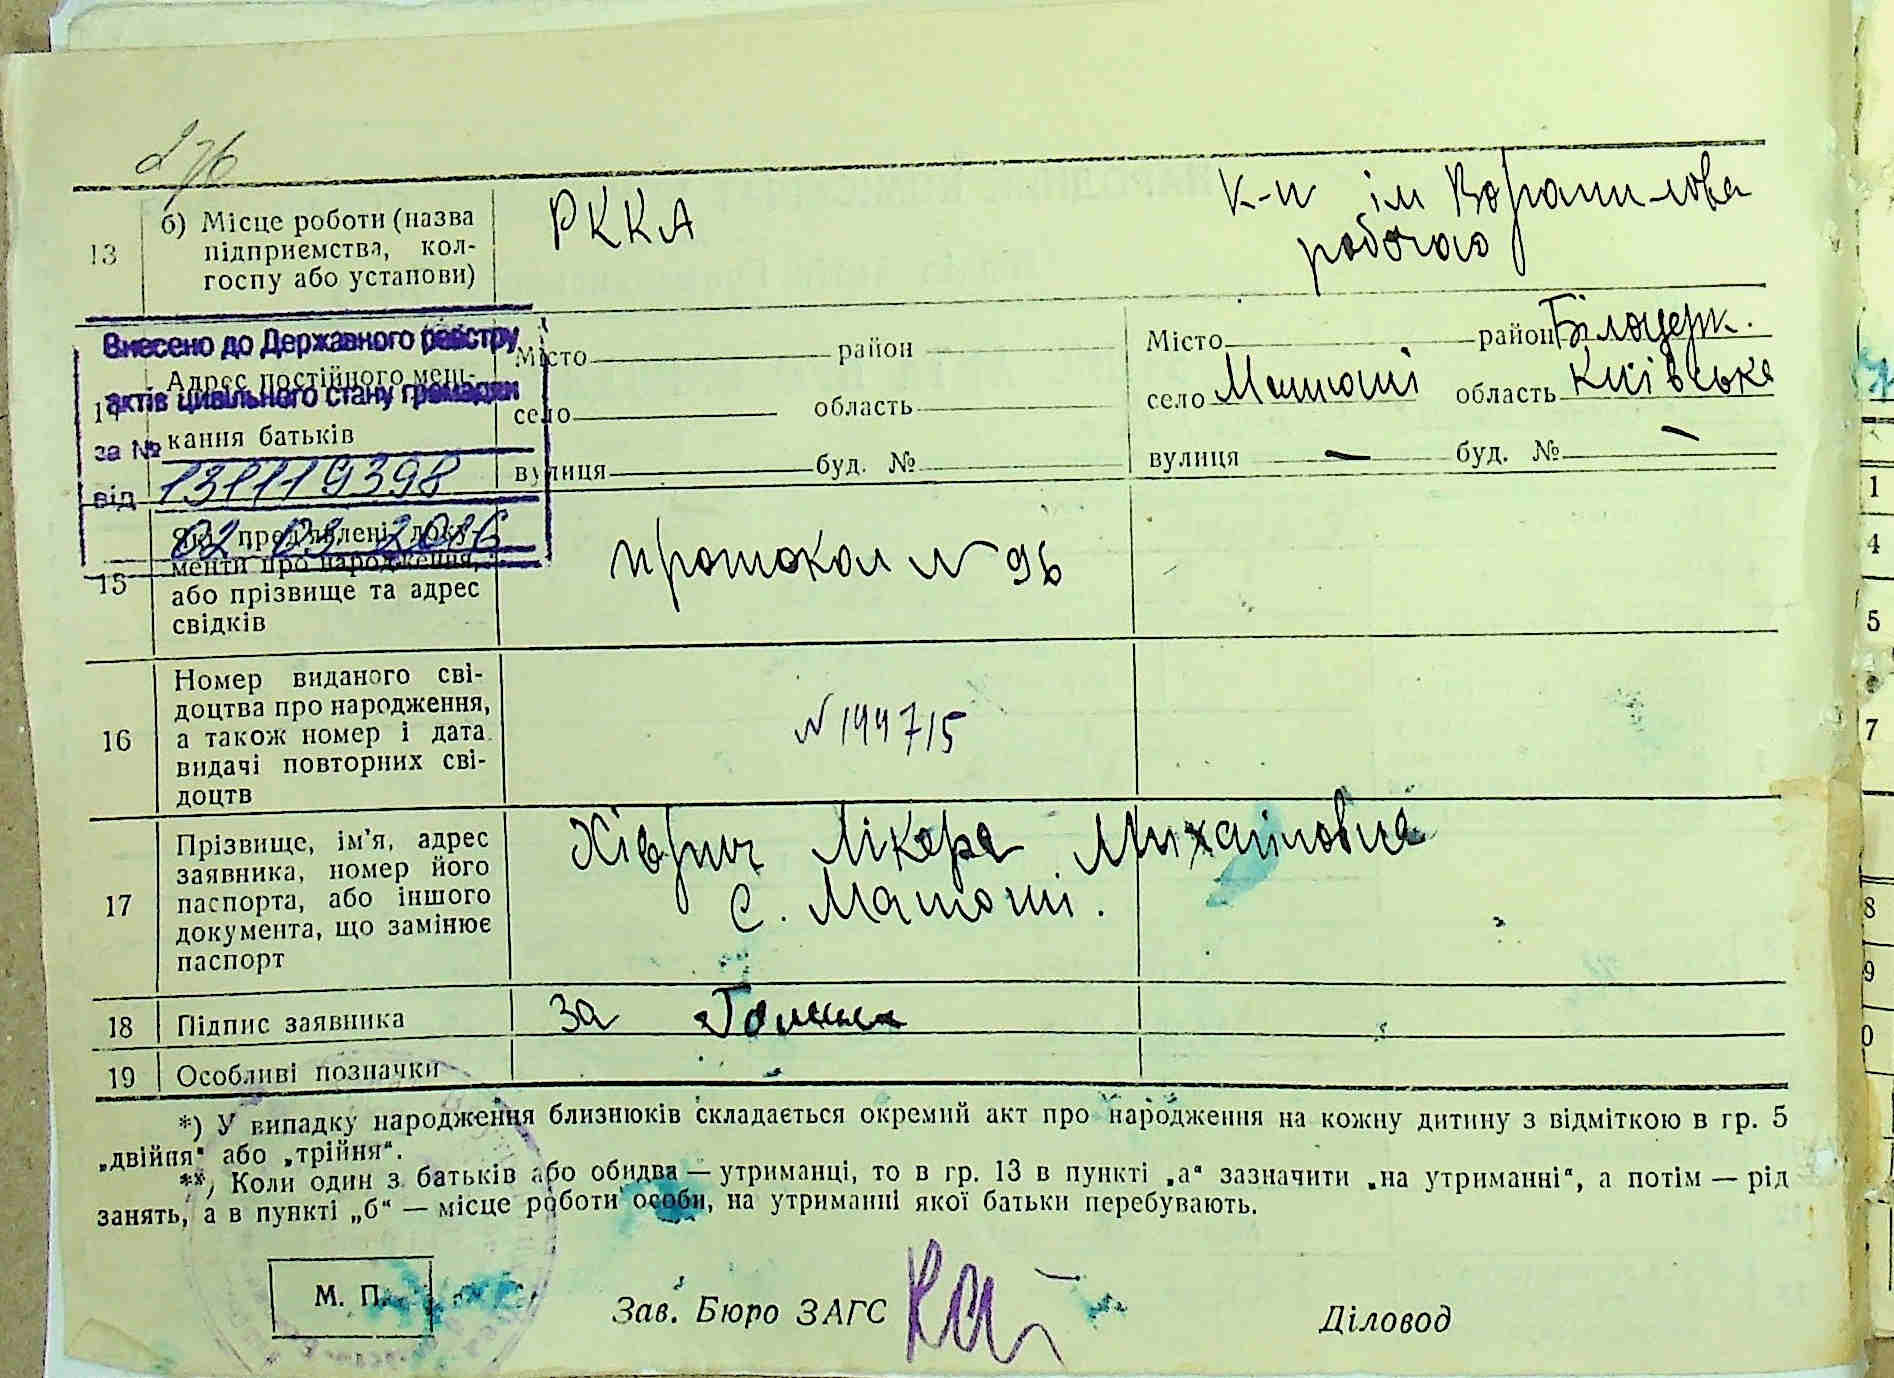 276
13 б) Місце роботи (назва підприємства, колгоспу або установи)
РККА
К-п ім Ворошилова
робочою
Внесено до Державного реєстру
актів цивільного стану громадян
за № 131119398
від 02 03 2016
Адрес постійного меш-
кання батьків
Місто район
село область
вулиця буд. №
Місто — район Білоцерк.
село Матюші область Київська
вулиця — буд. № —
15 Які пред'явлені доку-
менти про народження,
або прізвище та адрес
свідків
протокол N 96
16 Номер виданого сві-
доцтва про народження,
а також номер і дата
видачі повторних сві-
доцтв
N 199715
17 Прізвище, ім'я, адрес
заявника, номер його
паспорта, або іншого
документа, що замінює
паспорт
Михайловна
С. Матюші.
18 Підпис заявника
за
19 Особливі позначки
*) У випадку народження близнюків складається окремий акт про народження на кожну дитину з відміткою в гр. 5
„двійня“ або „трійня“.
**) Коли один з батьків або обидва — утриманці, то в гр. 13 в пункті „а“ зазначити „на утриманні“, а потім — рід
занять, а в пункті „б“ — місце роботи особи, на утриманні якої батьки перебувають.
М. П.
Зав. Бюро ЗАГС
Діловод